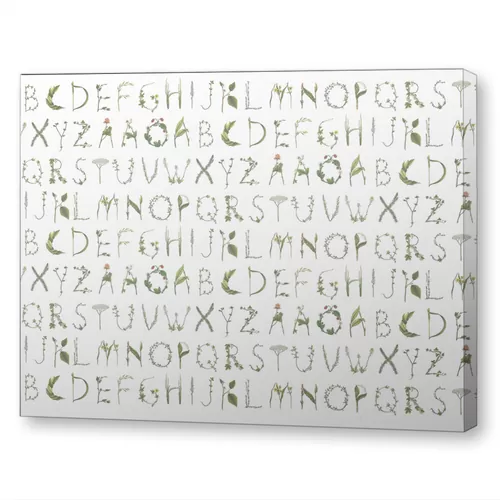 BCDEFGHIJKLMNOPQRST
XYZÅÄÖABCDEFGHIJKLM
QRSTUVWXYZÅÄÖABCDE
IJKLMNOPQRSTUVWXYZÅ
BCDEFGHIJKLMNOPQRST
XYZÅÄÖABCDEFGHIJKLM
QRSTUVWXYZÅÄÖABCDE
IJKLMNOPQRSTUVWXYZÅ
BCDEFGHIJKLMNOPQRST